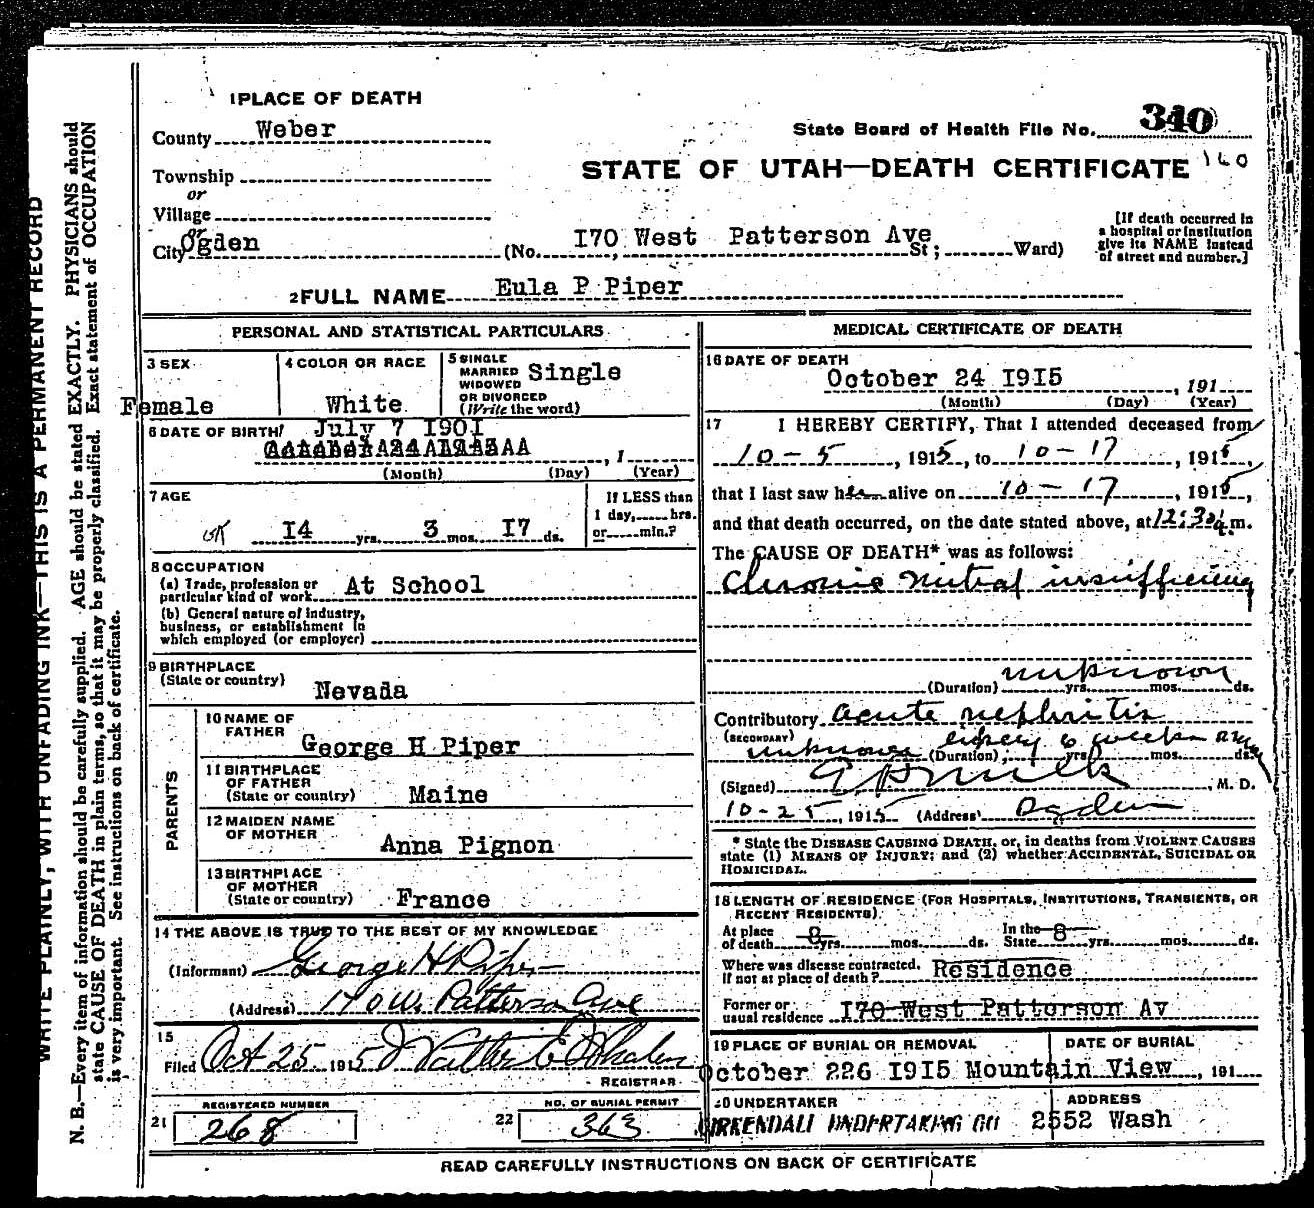 1 PLACE OF DEATH
County Weber
State Board of Health File No. 340
STATE OF UTAH—DEATH CERTIFICATE 160
Township
or
Village
or
City Ogden (No. I70 West Patterson Ave St; Ward)
[If death occurred in
a hospital or institution
give its NAME instead
of street and number.]
2 FULL NAME Eula P Piper
PERSONAL AND STATISTICAL PARTICULARS
3 SEX
Female
4 COLOR OR RACE
White
5 SINGLE
MARRIED
WIDOWED
OR DIVORCED
(Write the word)
Single
6 DATE OF BIRTH July 7 I90I
, 1
(Month) (Day) (Year)
7 AGE
I4 yrs. 3 mos. I7 ds.
If LESS than
1 day, hrs.
or min.?
8 OCCUPATION
(a) Trade, profession or
particular kind of work At School
(b) General nature of industry,
business, or establishment in
which employed (or employer)
9 BIRTHPLACE
(State or country)
Nevada
PARENTS
10 NAME OF
FATHER
George H Piper
11 BIRTHPLACE
OF FATHER
(State or country) Maine
12 MAIDEN NAME
OF MOTHER
Anna Pignon
13 BIRTHPLACE
OF MOTHER
(State or country) France
14 THE ABOVE IS TRUE TO THE BEST OF MY KNOWLEDGE
(Informant) George H Piper
(Address) 170 W. Patterson Ave
15
Filed Oct 25 1915 Walter E Whalen
REGISTRAR
REGISTERED NUMBER
21 268
NO. OF BURIAL PERMIT
22 363
MEDICAL CERTIFICATE OF DEATH
16 DATE OF DEATH
October 24 I9I5 , 191
(Month) (Day) (Year)
17 I HEREBY CERTIFY, That I attended deceased from
10-5, 1915, to 10-17, 1915,
that I last saw her alive on 10-17, 1915,
and that death occurred, on the date stated above, at 12:30 a.m.
The CAUSE OF DEATH* was as follows:
Chronic Mitral insufficiency
unknown
(Duration) yrs. mos. ds.
Contributory acute nephritis
(SECONDARY)
unknown 6 weeks
(Duration) yrs. mos. ds.
(Signed) , M. D.
10-25, 1915 (Address) Ogden
* State the DISEASE CAUSING DEATH, or, in deaths from VIOLENT CAUSES
state (1) MEANS OF INJURY; and (2) whether ACCIDENTAL, SUICIDAL OR
HOMICIDAL.
18 LENGTH OF RESIDENCE (FOR HOSPITALS, INSTITUTIONS, TRANSIENTS, OR
RECENT RESIDENTS).
At place
of death 8 yrs. mos. ds.
In the
State 8 yrs. mos. ds.
Where was disease contracted,
if not at place of death? Residence
Former or
usual residence I70 West Patterson Av
19 PLACE OF BURIAL OR REMOVAL DATE OF BURIAL
October 226 I9I5 Mountain View , 191
20 UNDERTAKER ADDRESS
KIRKENDALL UNDERTAKING CO 2552 Wash
READ CAREFULLY INSTRUCTIONS ON BACK OF CERTIFICATE
WRITE PLAINLY, WITH UNFADING INK—THIS IS A PERMANENT RECORD
N. B.—Every item of information should be carefully supplied. AGE should be stated EXACTLY. PHYSICIANS should
state CAUSE OF DEATH in plain terms, so that it may be properly classified. Exact statement of OCCUPATION
is very important. See instructions on back of certificate.